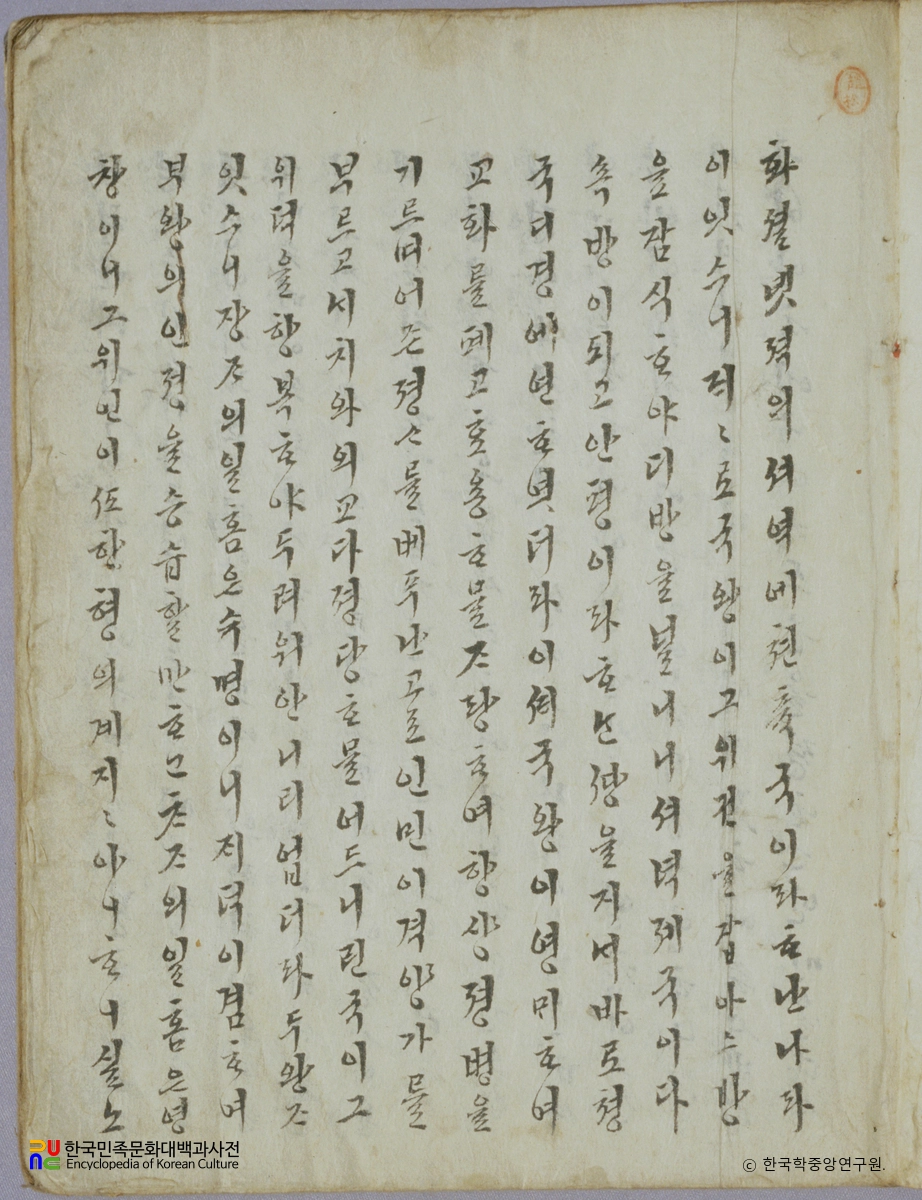 화셜녯젹의셔역에쳔츅국이라ᄒᆞ난나라
이잇스니져〻로국왕이그위권을잡아ᄉᆞ방
을잠식ᄒᆞ야디방을널니니셔녁제국이다
속방이되고안평이라ᄒᆞᄂᆞᆫ을지셔바로졍
국디경에연ᄒᆞ엿더라이셔국왕이영미ᄒᆞ여
교화를폐고효용ᄒᆞ믈ᄌᆞ당ᄒᆞ여항상졍병을
기르며어즌졍ᄉᆞ를베푸난고로인민이격양가를
부르고시치와외교다졍당ᄒᆞ믈어드니린국이그
위덕을항복ᄒᆞ야두려워안니리업더라두왕ᄌᆞ
잇스니장ᄌᆞ의일홈은슉명이니지덕이겸ᄒᆞ며
부왕의인졍을승습할만ᄒᆞ고ᄎᆞᄌᆞ의일홈은영
창이니그위인이형의게지〻아니ᄒᆞ니실노
한국민족문화대백과사전
Encyclopedia of Korean Culture
ⓒ 한국학중앙연구원.